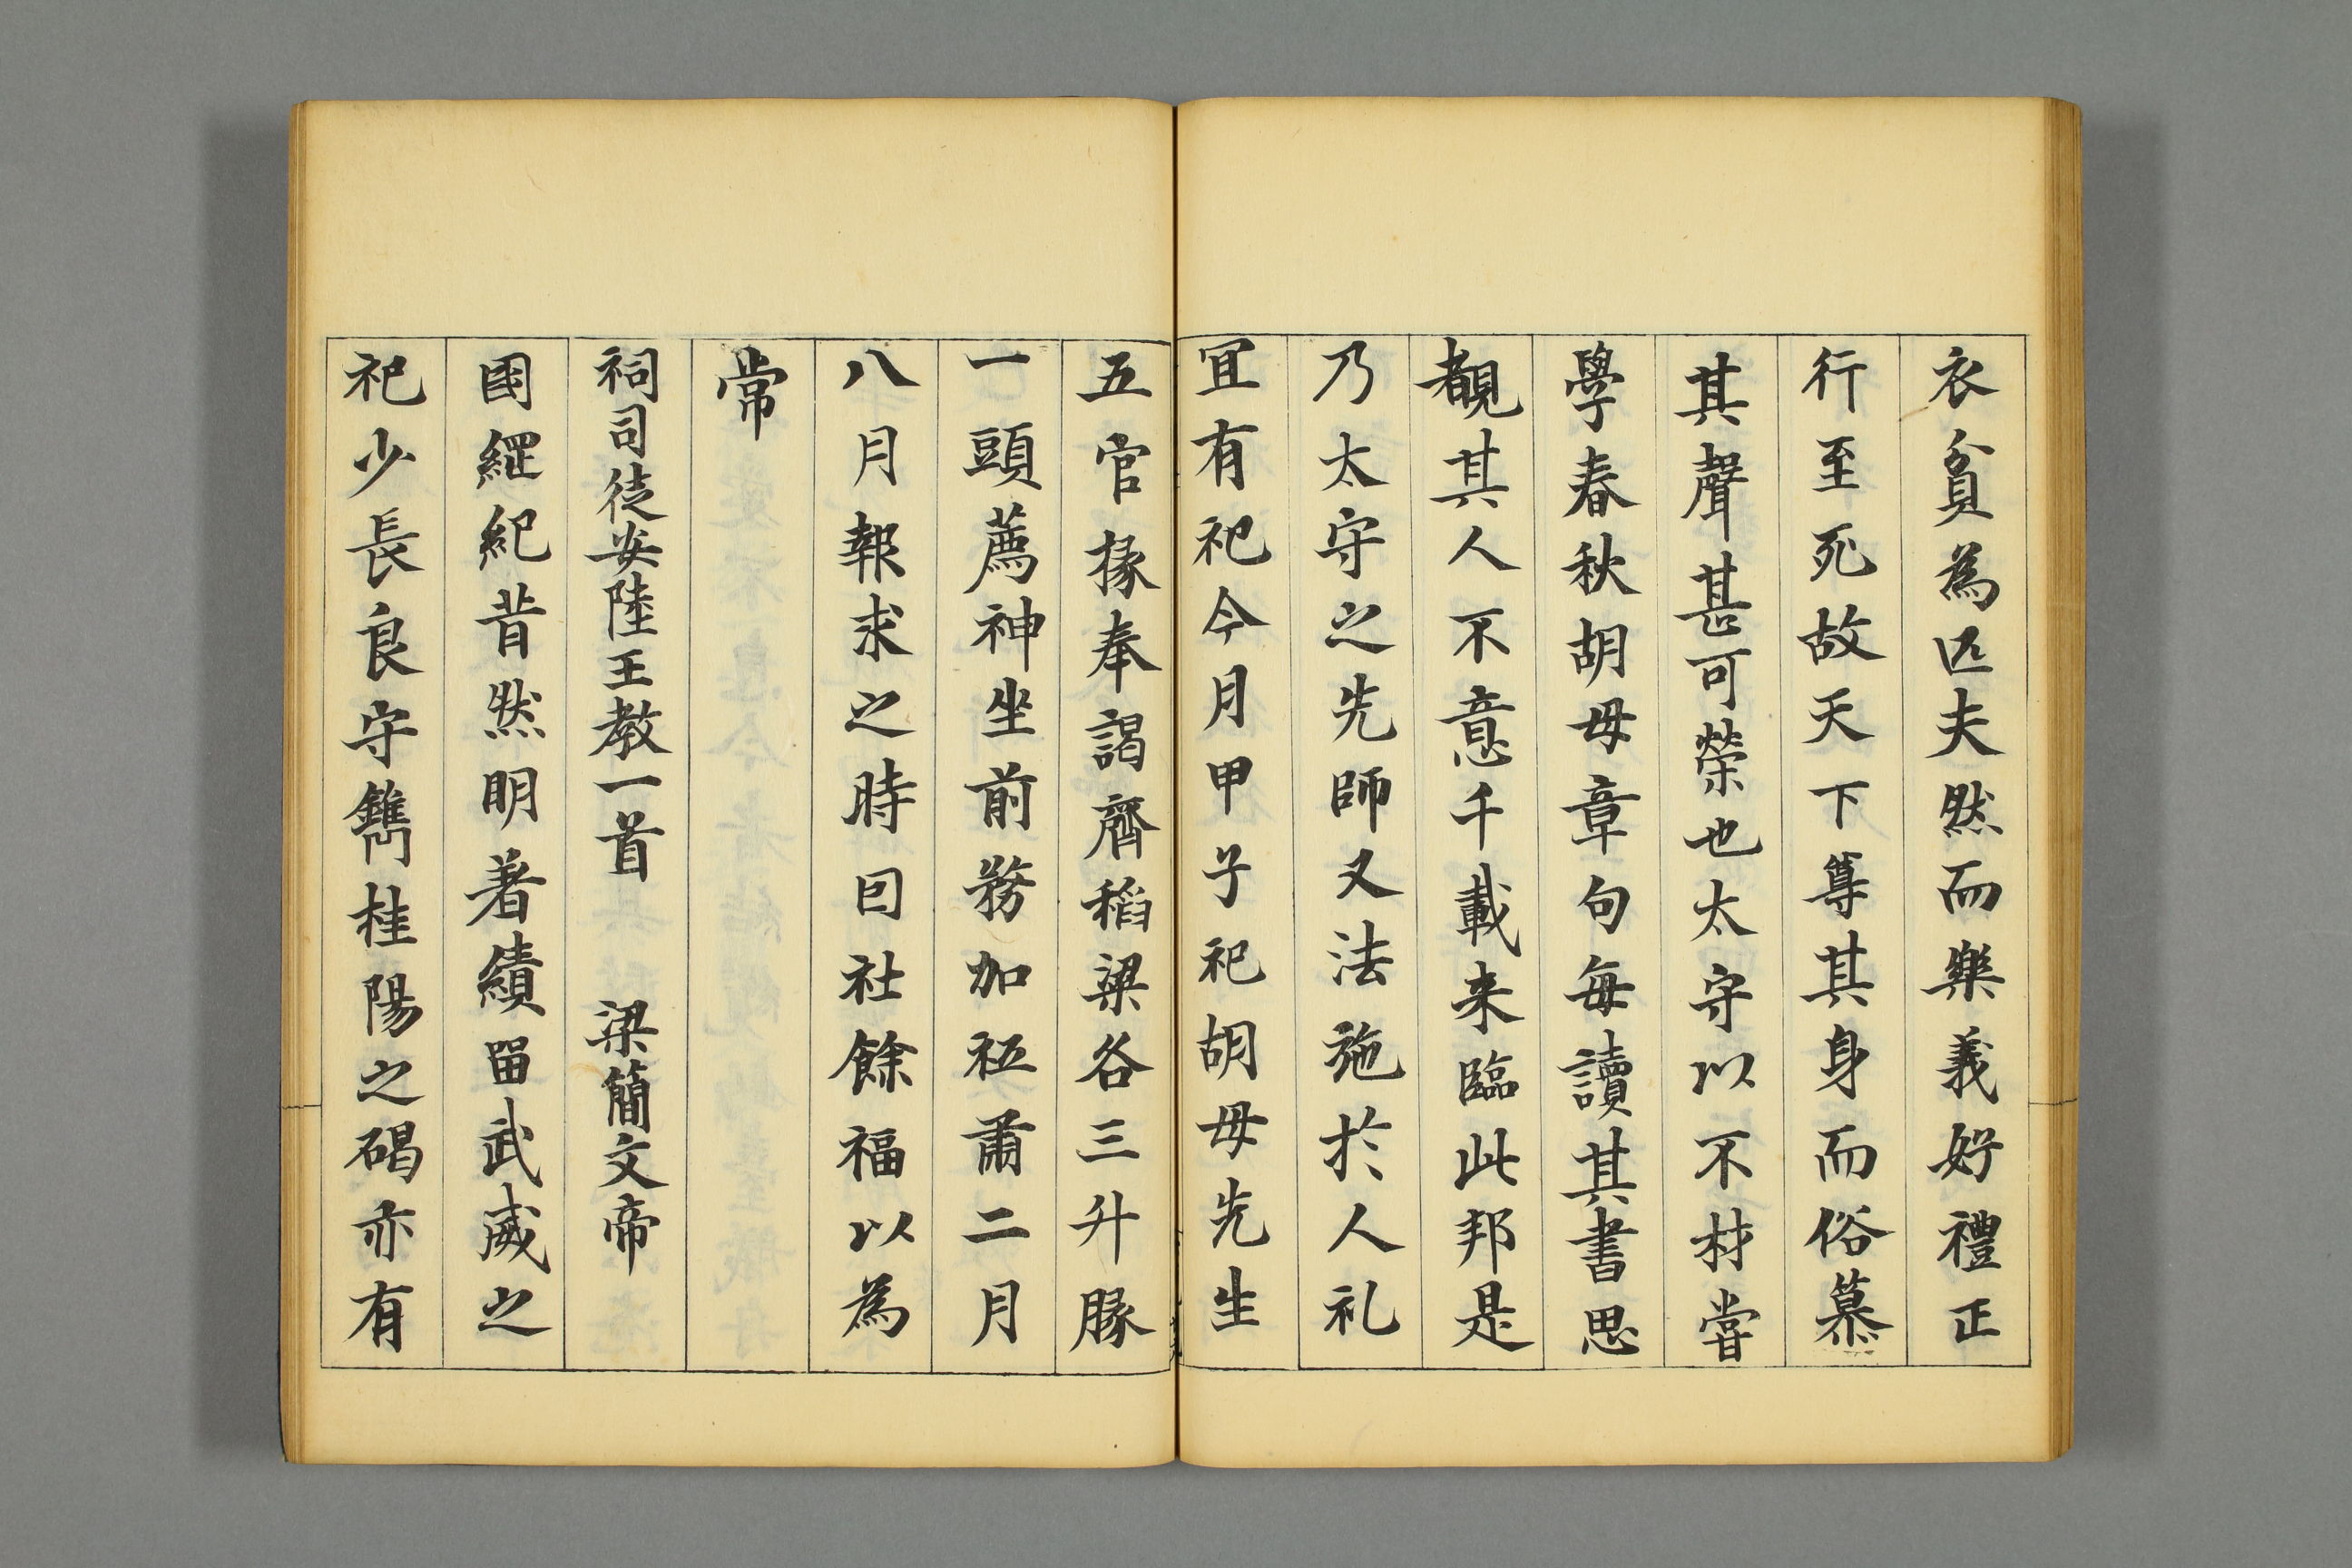 衣貧為匹夫然而樂義好禮正
行至死故天下尊其身而俗慕
其聲甚可榮也太守以不材嘗
學春秋胡毋章句每讀其書思
覩其人不意千載来臨此邦是
乃太守之先師又法施於人礼
冝有祀今月甲子祀胡毋先生
五官掾奉謁齊稻梁各三升豚
一頭薦神坐前務加祗肅二月
八月報求之時囙社餘福以為
常
祠司徒安陸王教一首 梁簡文帝
國經紀昔然明著績畱武威之
祀少長良守鐫桂陽之碣亦有